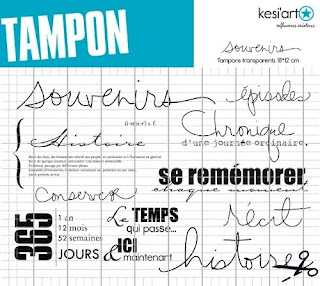 TAMPON
kesi'art
influences créatives
souvenirs
Tampons transparents 18*12 cm
souvenirs
épisodes
(i-stoi-r) s. f.
Histoire
Chronique
d'une journée ordinaire.
se remémorer
chaque moment
Conserver
365
1 an
12 mois
52 semaines
JOURS &
Le TEMPS
qui passe...
ICI
& maintenant
récit
histoire